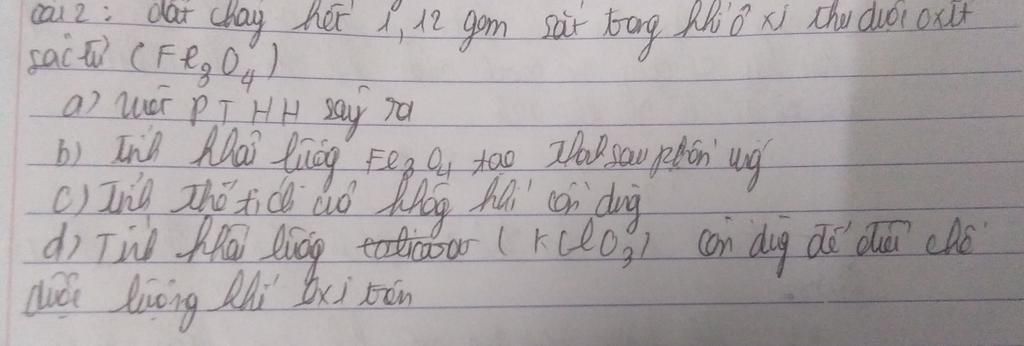 bài 2: đốt cháy hết 1,12 gam sắt trong khí ô xi thu được oxit
sắc từ (Fe3O4)
a) viết PTHH sảy ra
b) Tính khối lượng Fe3O4 tạo thành sau phản ứng
c) Tính thể tích của không khí cần dùng
d) Tính khối lượng (KClO3) cần dùng để điều chế
được lượng khí Oxi trên